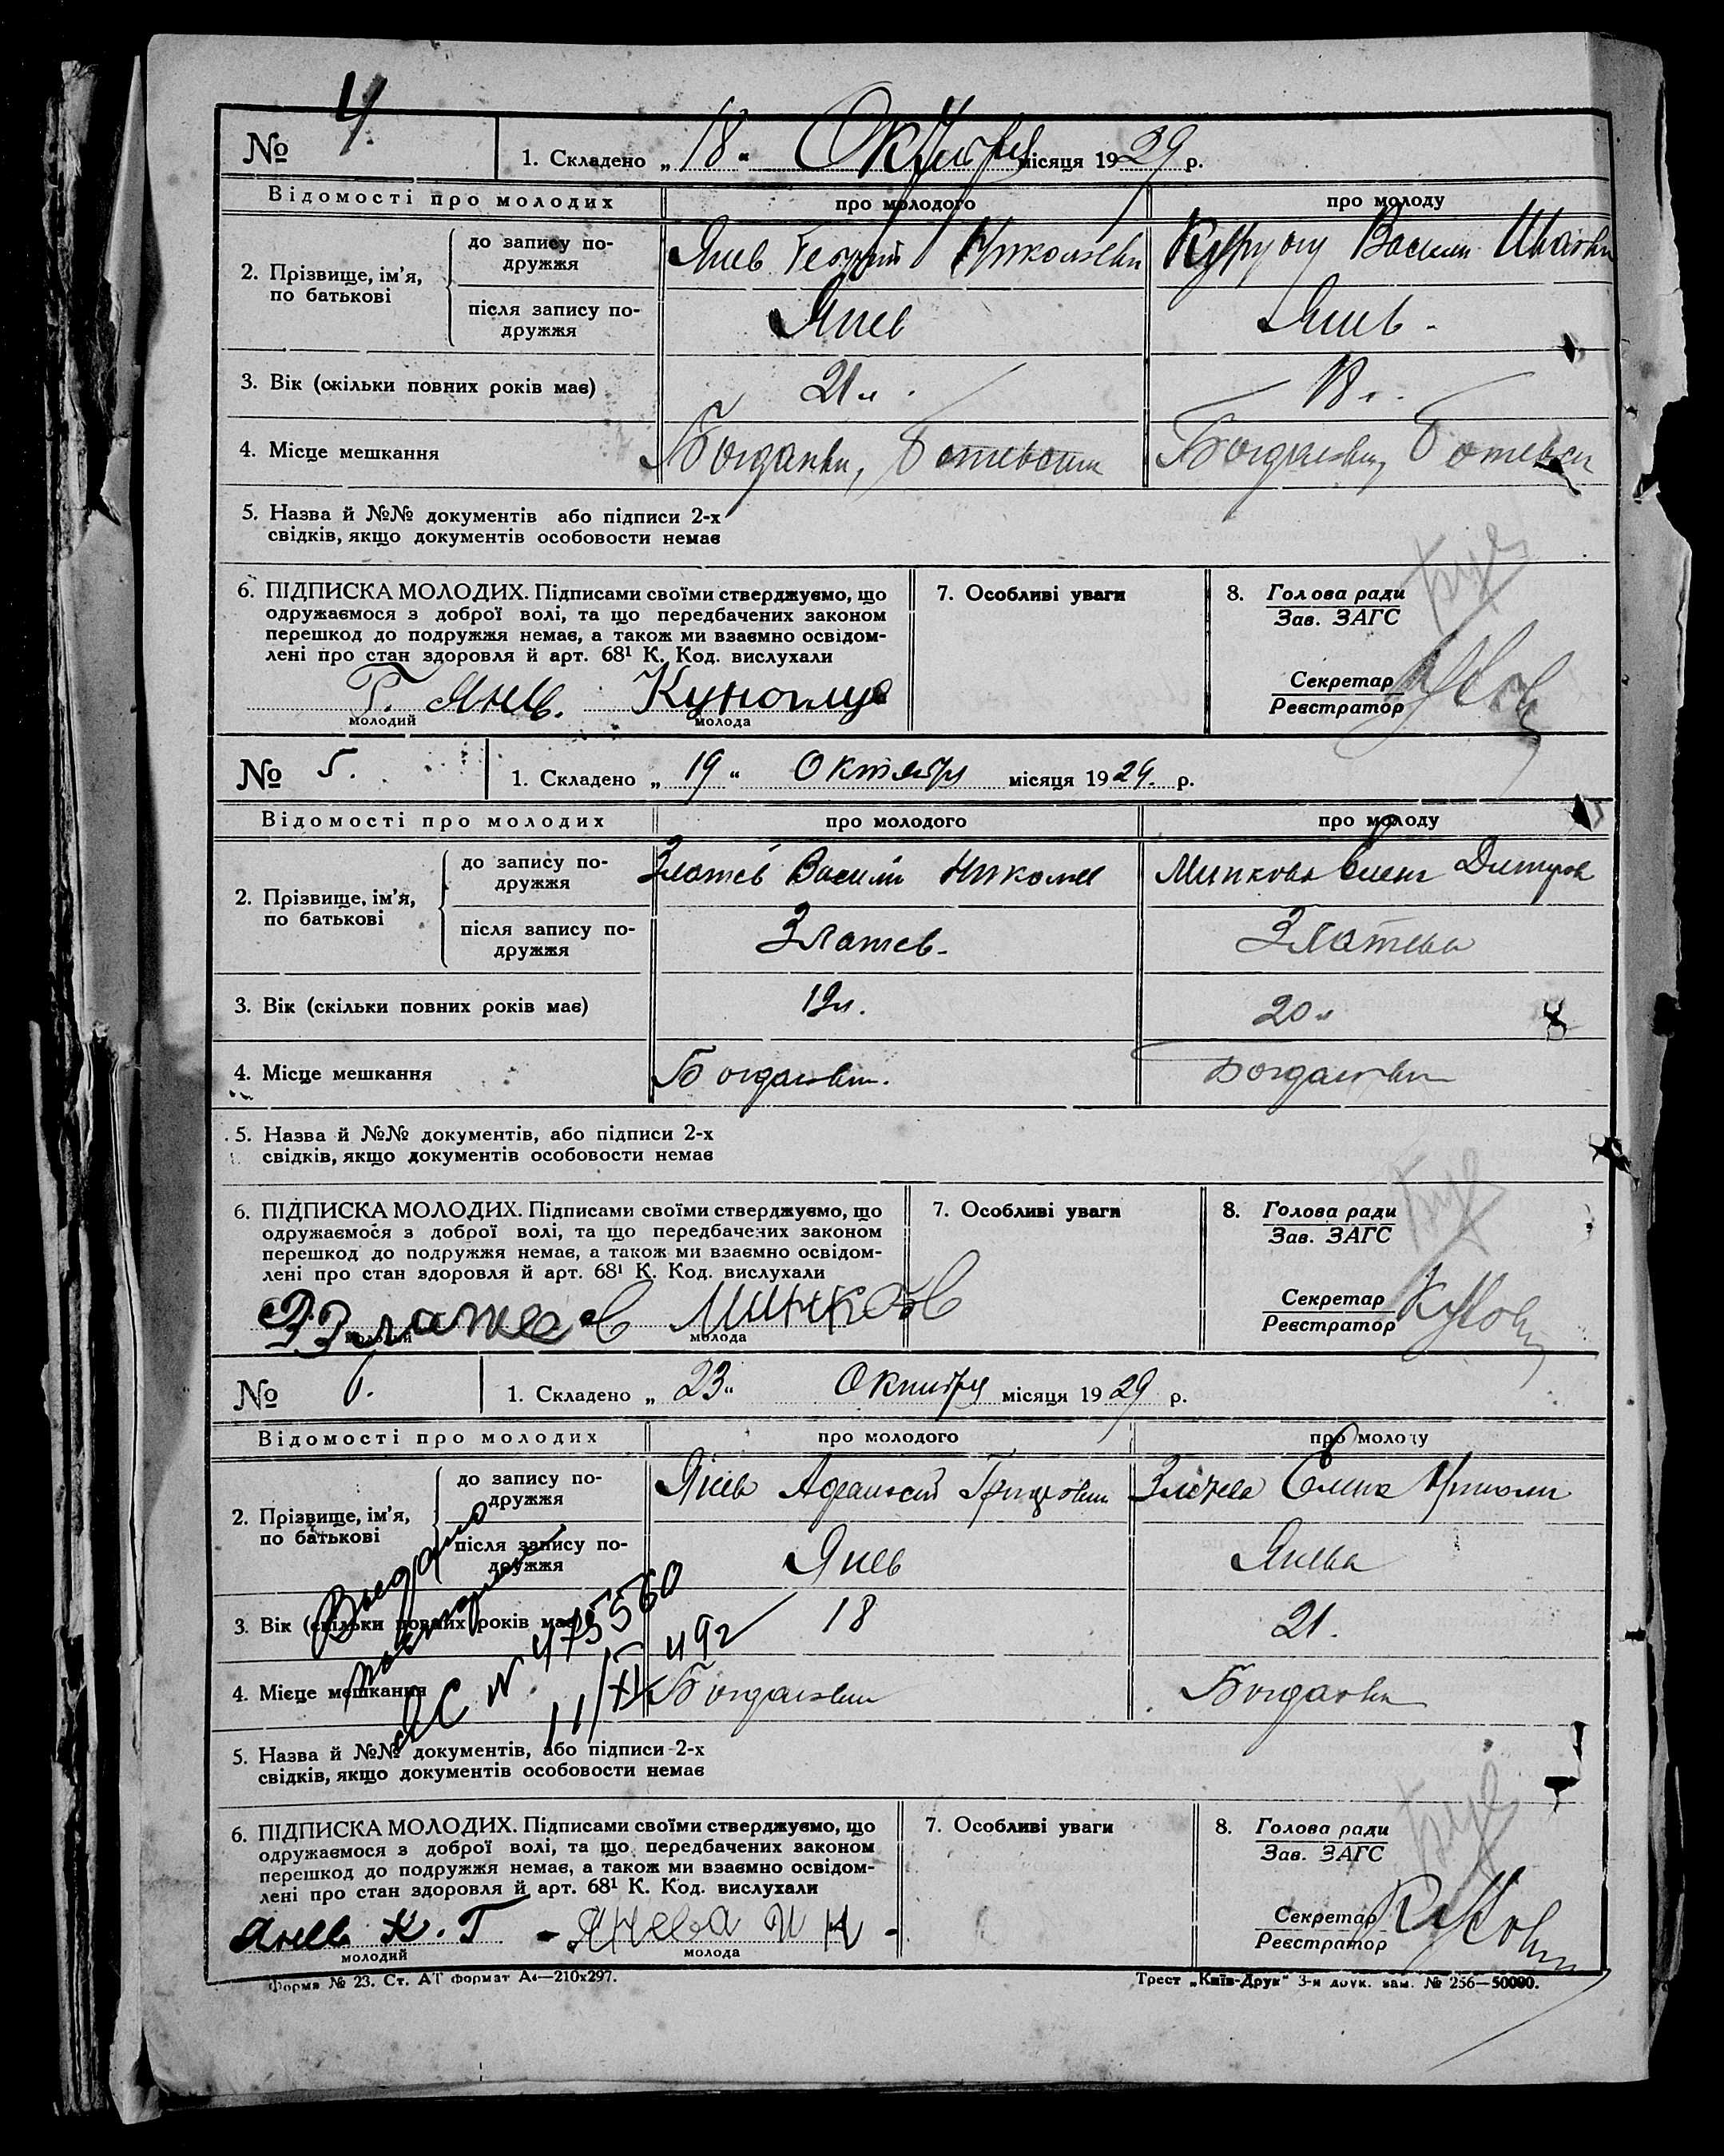 № 4. 1. Складено „ 18 " Октября місяця 1929 р.
Відомості про молодих про молодого про молоду
2. Прізвище, ім’я, по батькові
до запису подружжя Янев Георгий Николаевич Васили Иванов
після запису подружжя Янев Янев.
3. Вік (скільки повних років має) 21 л. 18 л.
4. Місце мешкання Богдановка,
5. Назва й №№ документів або підписи 2-х
свідків, якщо документів особовости немає
6. ПІДПИСКА МОЛОДИХ. Підписами своїми стверджуємо, що
одружаємося з доброї волі, та що передбачених законом
перешкод до подружжя немає, а також ми взаємно освідом-
лені про стан здоровля й арт. 68¹ К. Код. вислухали
Г. Янев.
молодий молода
7. Особливі уваги
8. Голова ради
Зав. ЗАГС
Секретар
Реєстратор
№ 5. 1. Складено „ 19 " Октября місяця 1929. р.
Відомості про молодих про молодого про молоду
2. Прізвище, ім’я, по батькові
до запису подружжя Златев Василий Николаев Минкова Елена Дмитров
після запису подружжя Златев. Златева
3. Вік (скільки повних років має) 19 л. 20 л.
4. Місце мешкання
5. Назва й №№ документів, або підписи 2-х
свідків, якщо документів особовости немає
6. ПІДПИСКА МОЛОДИХ. Підписами своїми стверджуємо, що
одружаємося з доброї волі, та що передбачених законом
перешкод до подружжя немає, а також ми взаємно освідом-
лені про стан здоровля й арт. 68¹ К. Код. вислухали
Златев Минков
молодий молода
7. Особливі уваги
8. Голова ради
Зав. ЗАГС
Секретар
Реєстратор
№ 6. 1. Складено „ 23 " Октября місяця 1929 р.
Відомості про молодих про молодого про молоду
2. Прізвище, ім’я, по батькові
до запису подружжя Янев Афанасий Златева Елена
після запису подружжя Янев Янева
3. Вік (скільки повних років має) 18 21.
4. Місце мешкання
Выдано
повторное
ЯС № 475560
11/XI 49 г
5. Назва й №№ документів, або підписи 2-х
свідків, якщо документів особовости немає
6. ПІДПИСКА МОЛОДИХ. Підписами своїми стверджуємо, що
одружаємося з доброї волі, та що передбачених законом
перешкод до подружжя немає, а також ми взаємно освідом-
лені про стан здоровля й арт. 68¹ К. Код. вислухали
Янев К. Г - Янева И Н -
молодий молода
7. Особливі уваги
8. Голова ради
Зав. ЗАГС
Секретар
Реєстратор
Форма № 23. Ст. АТ формат А4—210х297. Трест „Київ-Друк" 3-я друк. зам. № 256—50000.